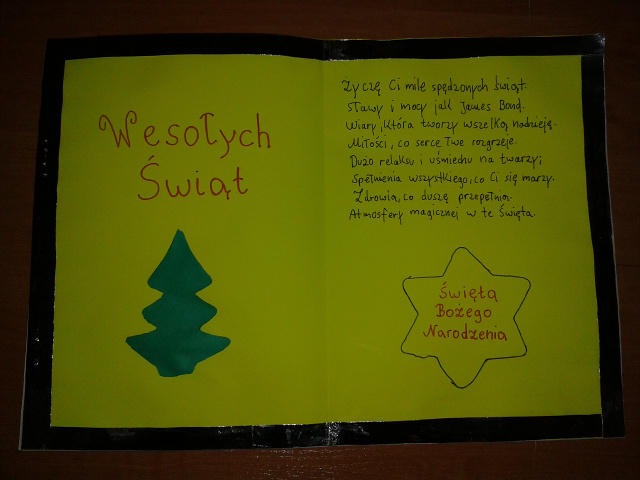 Wesołych
Świąt
Życzę Ci mile spędzonych świąt.
Sławy i mocy jak James Bond.
Wiary, która tworzy wszelką nadzieję.
Miłości, co serce Twe rozgrzeje.
Dużo relaksu i uśmiechu na twarzy;
Spełnienia wszystkiego, co Ci się marzy.
Zdrowia, co duszę przepełnia.
Atmosfery magicznej w te Święta.
Święta
Bożego
Narodzenia